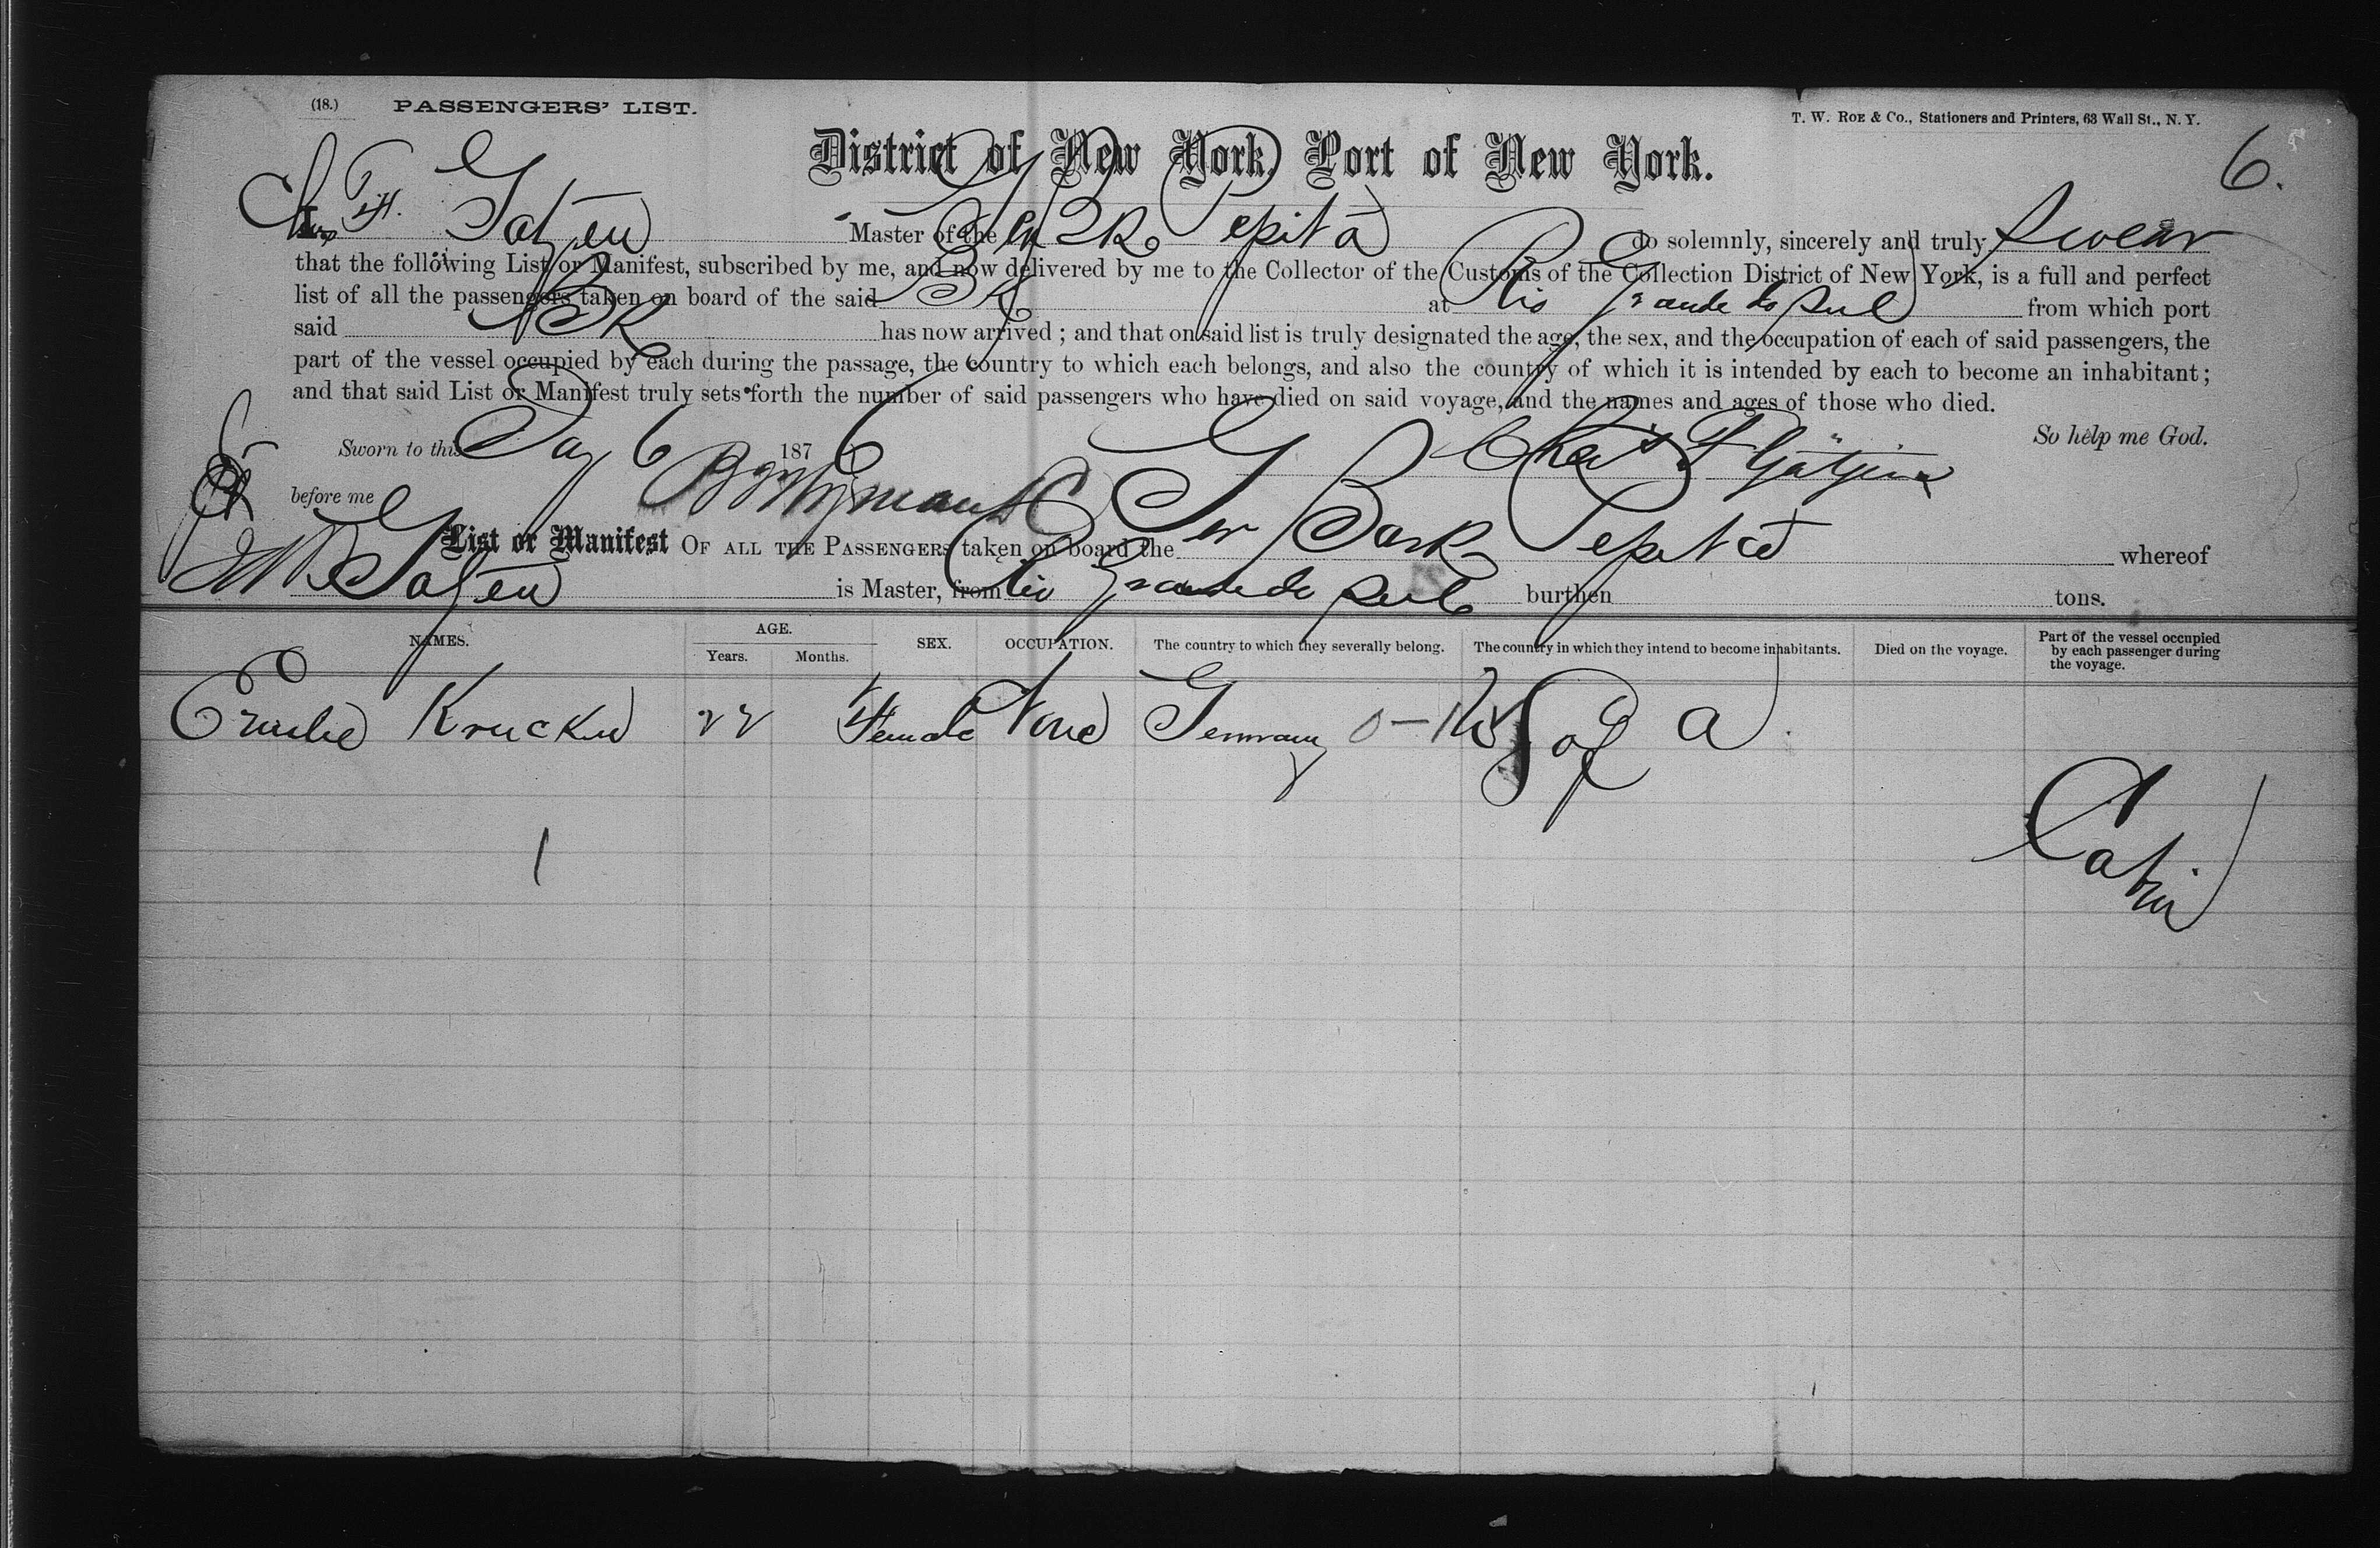 (18.) PASSENGERS' LIST.
T. W. ROE & Co., Stationers and Printers, 63 Wall St., N. Y.
District of New York, Port of New York.
6.
I, Gatjen Master of the Ger Bk Pepita do solemnly, sincerely and truly swear
that the following List or Manifest, subscribed by me, and now delivered by me to the Collector of the Customs of the Collection District of New York, is a full and perfect
list of all the passengers taken on board of the said Bk at Rio Grande do Sul from which port
said Bk has now arrived ; and that on said list is truly designated the age, the sex, and the occupation of each of said passengers, the
part of the vessel occupied by each during the passage, the country to which each belongs, and also the country of which it is intended by each to become an inhabitant ;
and that said List or Manifest truly sets forth the number of said passengers who have died on said voyage, and the names and ages of those who died.
So help me God.
Sworn to this Jany 6 1876
before me
List or Manifest OF ALL THE PASSENGERS taken on board the Ger Bark Pepita whereof
Gatjen is Master, from Rio Grande do Sul burthen tons.
NAMES. AGE. Years. Months. SEX. OCCUPATION. The country to which they severally belong. The country in which they intend to become inhabitants. Died on the voyage. Part of the vessel occupied by each passenger during the voyage.
Emilie 22 Female None Germany U S of A.
Cabin
1